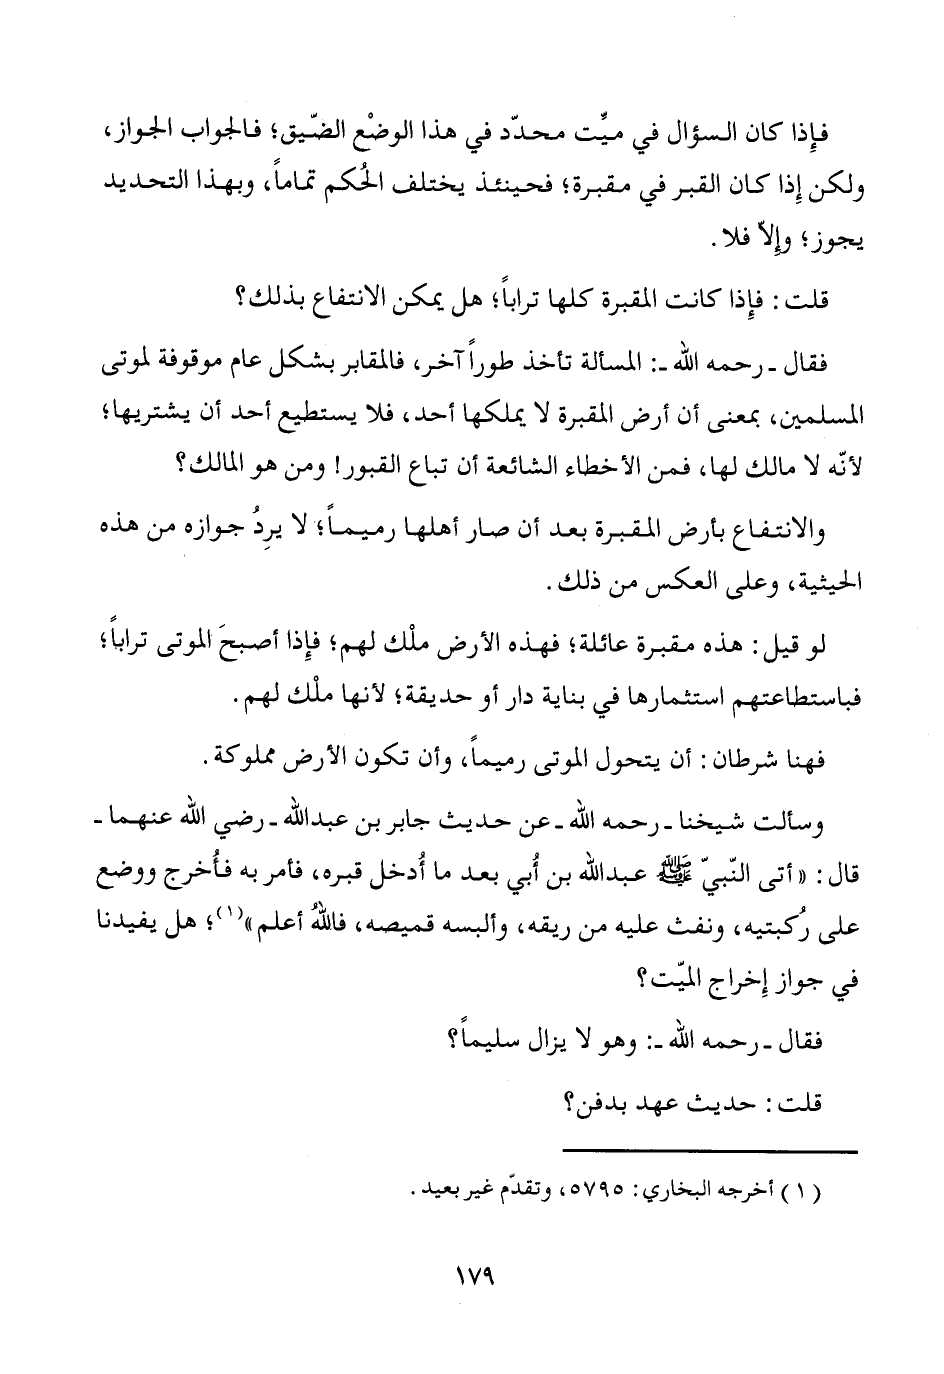 فإذا كان السؤال في ميِّت محدّد في هذا الوضْع الضّيق؛ فالجواب الجواز،
ولكن إذا كان القبر في مقبرة؛ فحينئذ يختلف الحُكم تماماً، وبهذا التحديد
يجوز؛ وإلاّ فلا.
قلت: فإذا كانت المقبرة كلها تراباً؛ هل يمكن الانتفاع بذلك؟
فقال ـ رحمه الله ـ: المسألة تأخذ طوراً آخر، فالمقابر بشكل عام موقوفة لموتى
المسلمين، بمعنى أن أرض المقبرة لا يملكها أحد، فلا يستطيع أحد أن يشتريها؛
لأنّه لا مالك لها، فمن الأخطاء الشائعة أن تباع القبور! ومن هو المالك؟
والانتفاع بأرض المقبرة بعد أن صار أهلها رميماً؛ لا يرِدُ جوازه من هذه
الحيثية، وعلى العكس من ذلك.
لو قيل: هذه مقبرة عائلة؛ فهذه الأرض ملْك لهم؛ فإذا أصبحَ الموتى تراباً؛
فباستطاعتهم استثمارها في بناية دار أو حديقة؛ لأنها ملْك لهم.
فهنا شرطان: أن يتحول الموتى رميماً، وأن تكون الأرض مملوكة.
وسألت شيخنا ـ رحمه الله ـ عن حديث جابر بن عبدالله ـ رضي الله عنهما ـ
قال: «أتى النّبيّ ﷺ عبدالله بن أُبي بعد ما أُدخل قبره، فأمر به فأُخرج ووضع
على رُكبتيه، ونفث عليه من ريقه، وألبسه قميصه، فاللهُ أعلم»(١)؛ هل يفيدنا
في جواز إخراج الميّت؟
فقال ـ رحمه الله ـ: وهو لا يزال سليماً؟
قلت: حديث عهد بدفن؟
(١) أخرجه البخاري: ٥٧٩٥، وتقدّم غير بعيد.
١٧٩